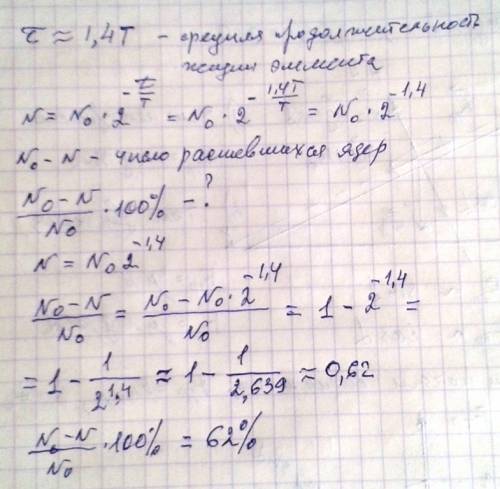 τ ≈ 1,4T – средняя продолжительность
жизни элемента
N = N₀·2^(-t/T) = N₀·2^(-1,4T/T) = N₀·2^(-1,4)
N₀ - N – число распавшихся ядер
(N₀ - N)/N₀ · 100% - ?
N = N₀ 2^(-1,4)
(N₀ - N)/N₀ = (N₀ - N₀·2^(-1,4))/N₀ = 1 - 2^(-1,4) =
= 1 - 1/2^(1,4) ≈ 1 - 1/2,639 ≈ 0,62
(N₀ - N)/N₀ · 100% = 62%